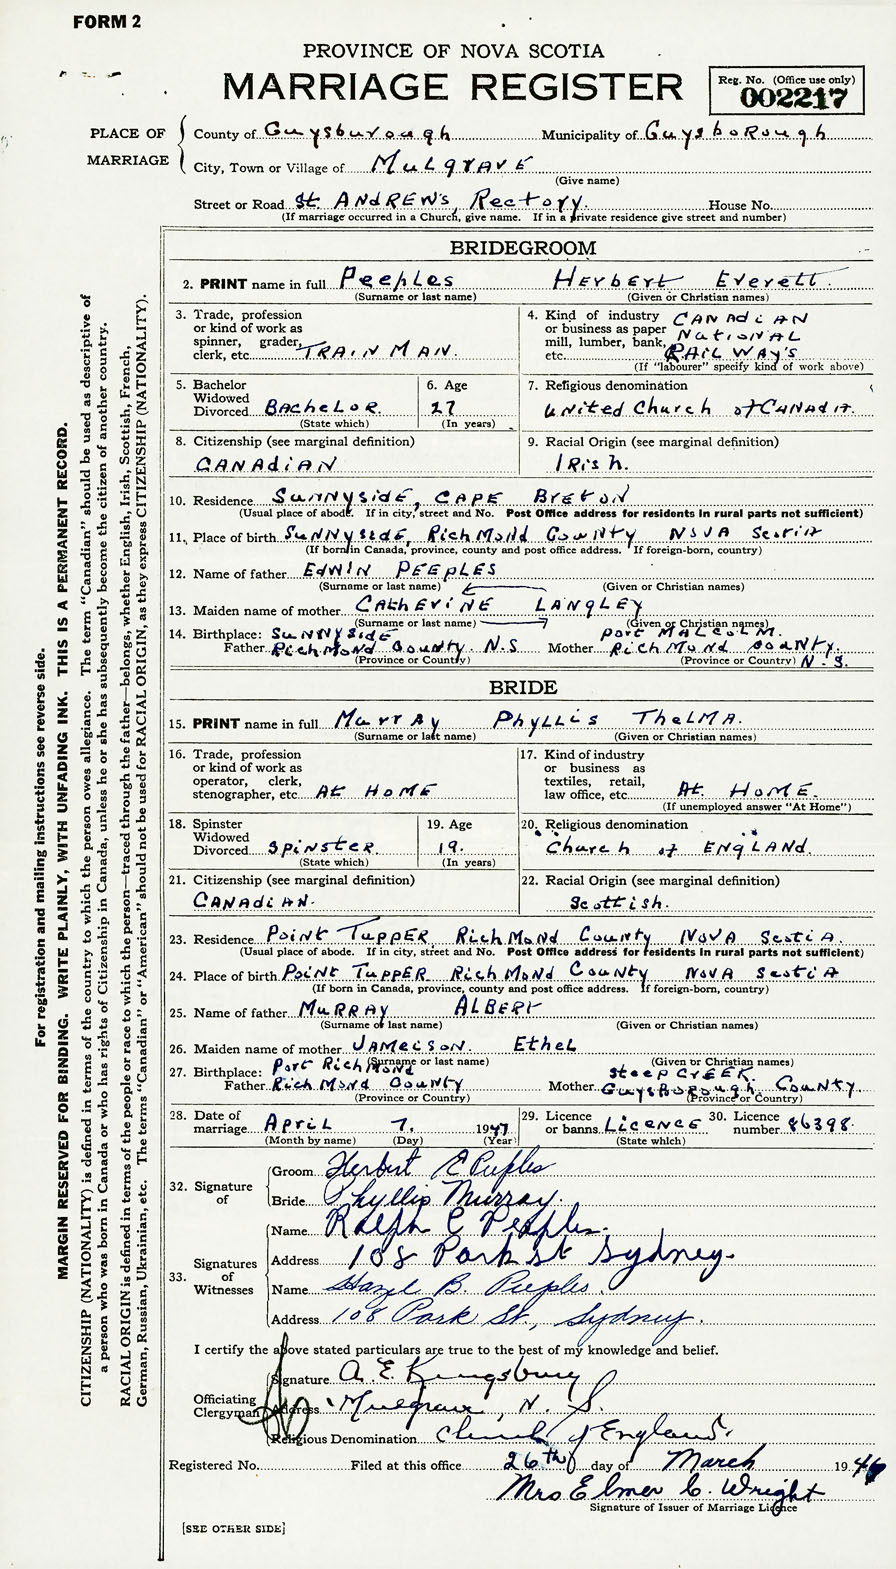 FORM 2
PROVINCE OF NOVA SCOTIA
MARRIAGE REGISTER
Reg. No. (Office use only)
002217
PLACE OF MARRIAGE
County of Guysburough Municipality of Guysborough
City, Town or Village of Mulgrave
(Give name)
Street or Road St. Andrew's Rectory. House No.
(If marriage occurred in a Church, give name. If in a private residence give street and number)
BRIDEGROOM
2. PRINT name in full Peeples Herbert Everett.
(Surname or last name) (Given or Christian names)
3. Trade, profession or kind of work as spinner, grader, clerk, etc. TRAINMAN.
4. Kind of industry or business as paper mill, lumber, bank, etc. CANAdiAN NatioNAL RAILWAY'S
(If "labourer" specify kind of work above)
5. Bachelor Widowed Divorced BACheLOR.
(State which)
6. Age 27
(In years)
7. Religious denomination United Church of CANADA.
8. Citizenship (see marginal definition)
CANAdiAN
9. Racial Origin (see marginal definition)
IRish.
10. Residence SuNNyside, CAPE BretoN
(Usual place of abode. If in city, street and No. Post Office address for residents in rural parts not sufficient)
11. Place of birth SuNNyside, RichMoNd CouNty NovA ScotiA
(If born in Canada, province, county and post office address. If foreign-born, country)
12. Name of father EDWIN PEEPLES
(Surname or last name) (Given or Christian names)
13. Maiden name of mother CAtherINE LANGLEY
(Surname or last name) (Given or Christian names)
14. Birthplace: Father SuNNySide RichMoNd CouNty. N.S Mother Port MALCOLM. RichMoNd CouNty. N.S.
(Province or County) (Province or County)
BRIDE
15. PRINT name in full Murray Phyllis TheLMA.
(Surname or last name) (Given or Christian names)
16. Trade, profession or kind of work as operator, clerk, stenographer, etc. At HoME
17. Kind of industry or business as textiles, retail, law office, etc. At HOME.
(If unemployed answer "At Home")
18. Spinster Widowed Divorced SpiNster.
(State which)
19. Age 19.
(In years)
20. Religious denomination
Church of ENGLANd.
21. Citizenship (see marginal definition)
CANAdiAN.
22. Racial Origin (see marginal definition)
Scottish.
23. Residence PoiNt TuPPER, RichMoNd CouNty NovA ScotiA.
(Usual place of abode. If in city, street and No. Post Office address for residents in rural parts not sufficient)
24. Place of birth PoiNt TuPPER RichMoNd CouNty NovA ScotiA
(If born in Canada, province, county and post office address. If foreign-born, country)
25. Name of father MuRRAy ALBERt
(Surname or last name) (Given or Christian names)
26. Maiden name of mother JAMeison. EtheL
(Surname or last name) (Given or Christian names)
27. Birthplace: Father Port RichMoNd RichMoNd CouNty Mother SteeP CrEEK. Guysborough County.
(Province or County) (Province or County)
28. Date of marriage April 7. 1947
(Month by name) (Day) (Year)
29. Licence or banns LiceNce
(State which)
30. Licence number 86398.
32. Signature of
Groom Herbert E Peeples
Bride Phyllis Murray.
33. Signatures of Witnesses
Name Ralph C Peeples.
Address 108 Park St Sydney.
Name Hazel B. Peeples.
Address 108 Park St., Sydney.
I certify the above stated particulars are true to the best of my knowledge and belief.
Officiating Clergyman
Signature A. E. Kingsbury
Address Mulgrave, N. S.
Religious Denomination Church of England.
Registered No. Filed at this office 26th day of March 194
Mrs Elmer C. Wright
Signature of Issuer of Marriage Licence
[SEE OTHER SIDE]
For registration and mailing instructions see reverse side.
MARGIN RESERVED FOR BINDING. WRITE PLAINLY, WITH UNFADING INK. THIS IS A PERMANENT RECORD.
CITIZENSHIP (NATIONALITY) is defined in terms of the country to which the person owes allegiance. The term "Canadian" should be used as descriptive of
a person who was born in Canada or who has rights of Citizenship in Canada, unless he or she has subsequently become the citizen of another country.
RACIAL ORIGIN is defined in terms of the people or race to which the person—traced through the father—belongs, whether English, Irish, Scottish, French,
German, Russian, Ukrainian, etc. The terms "Canadian" or "American" should not be used for RACIAL ORIGIN, as they express CITIZENSHIP (NATIONALITY).